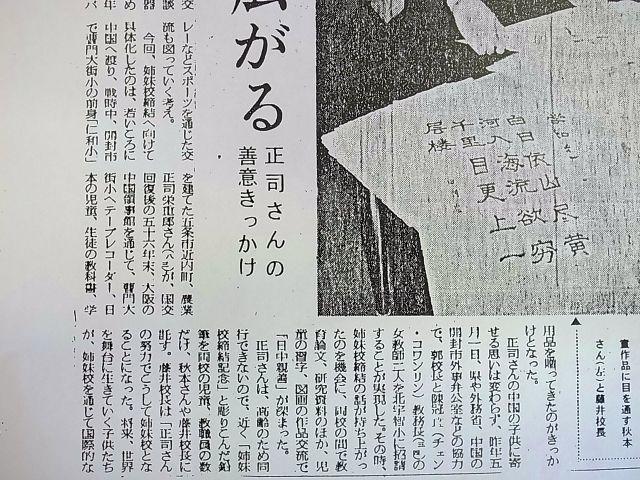 広がる
正司さんの
善意きっかけ
白日依山尽黄
河入海流欲穷
千里目更上一
层楼
童作品に目を通す秋本
さん(左)と藤井校長
交
談
器
年
バ
レーなどスポーツを通じた交
流も図っていく考え。
今回、姉妹校締結へ向けて
具体化したのは、若いころに
中国へ渡り、戦時中、開封市
で曹門大街小の前身「仁和小」
を建てた五条市近内町、農業
正司栄重郎さん が、国交
回復後の五十六年末、大阪の
中国領事館を通じて、曹門大
街小へテープレコーダー、日
本の児童、生徒の教科書、学
用品を贈ってきたのがきっか
けとなった。
正司さんの中国の子供に寄
せる思いは変わらず、昨年五
月一日、県や外務省、中国の
開封市外事弁公室などの協力
で、郭校長と陳冠 (チェン
・コワンリン)教務長 の
女教師二人を北宇智小に招請
することが実現した。その時、
姉妹校締結の話が持ち上がっ
たのを機会に、両校の間で教
育論文、研究資料のほか、児
童の習字、図画の作品交流で
「日中親善」が深まった。
正司さんは、高齢のため同
行できないので、近く「姉妹
校締結記念」と彫りこんだ鉛
筆を両校の児童、教職員の数
だけ、秋本さんや藤井校長に
託す。藤井校長は「正司さん
の努力でこうして姉妹校とな
ることになった。将来、世界
を舞台に生きていく子供たち
が、姉妹校を通じて国際的な